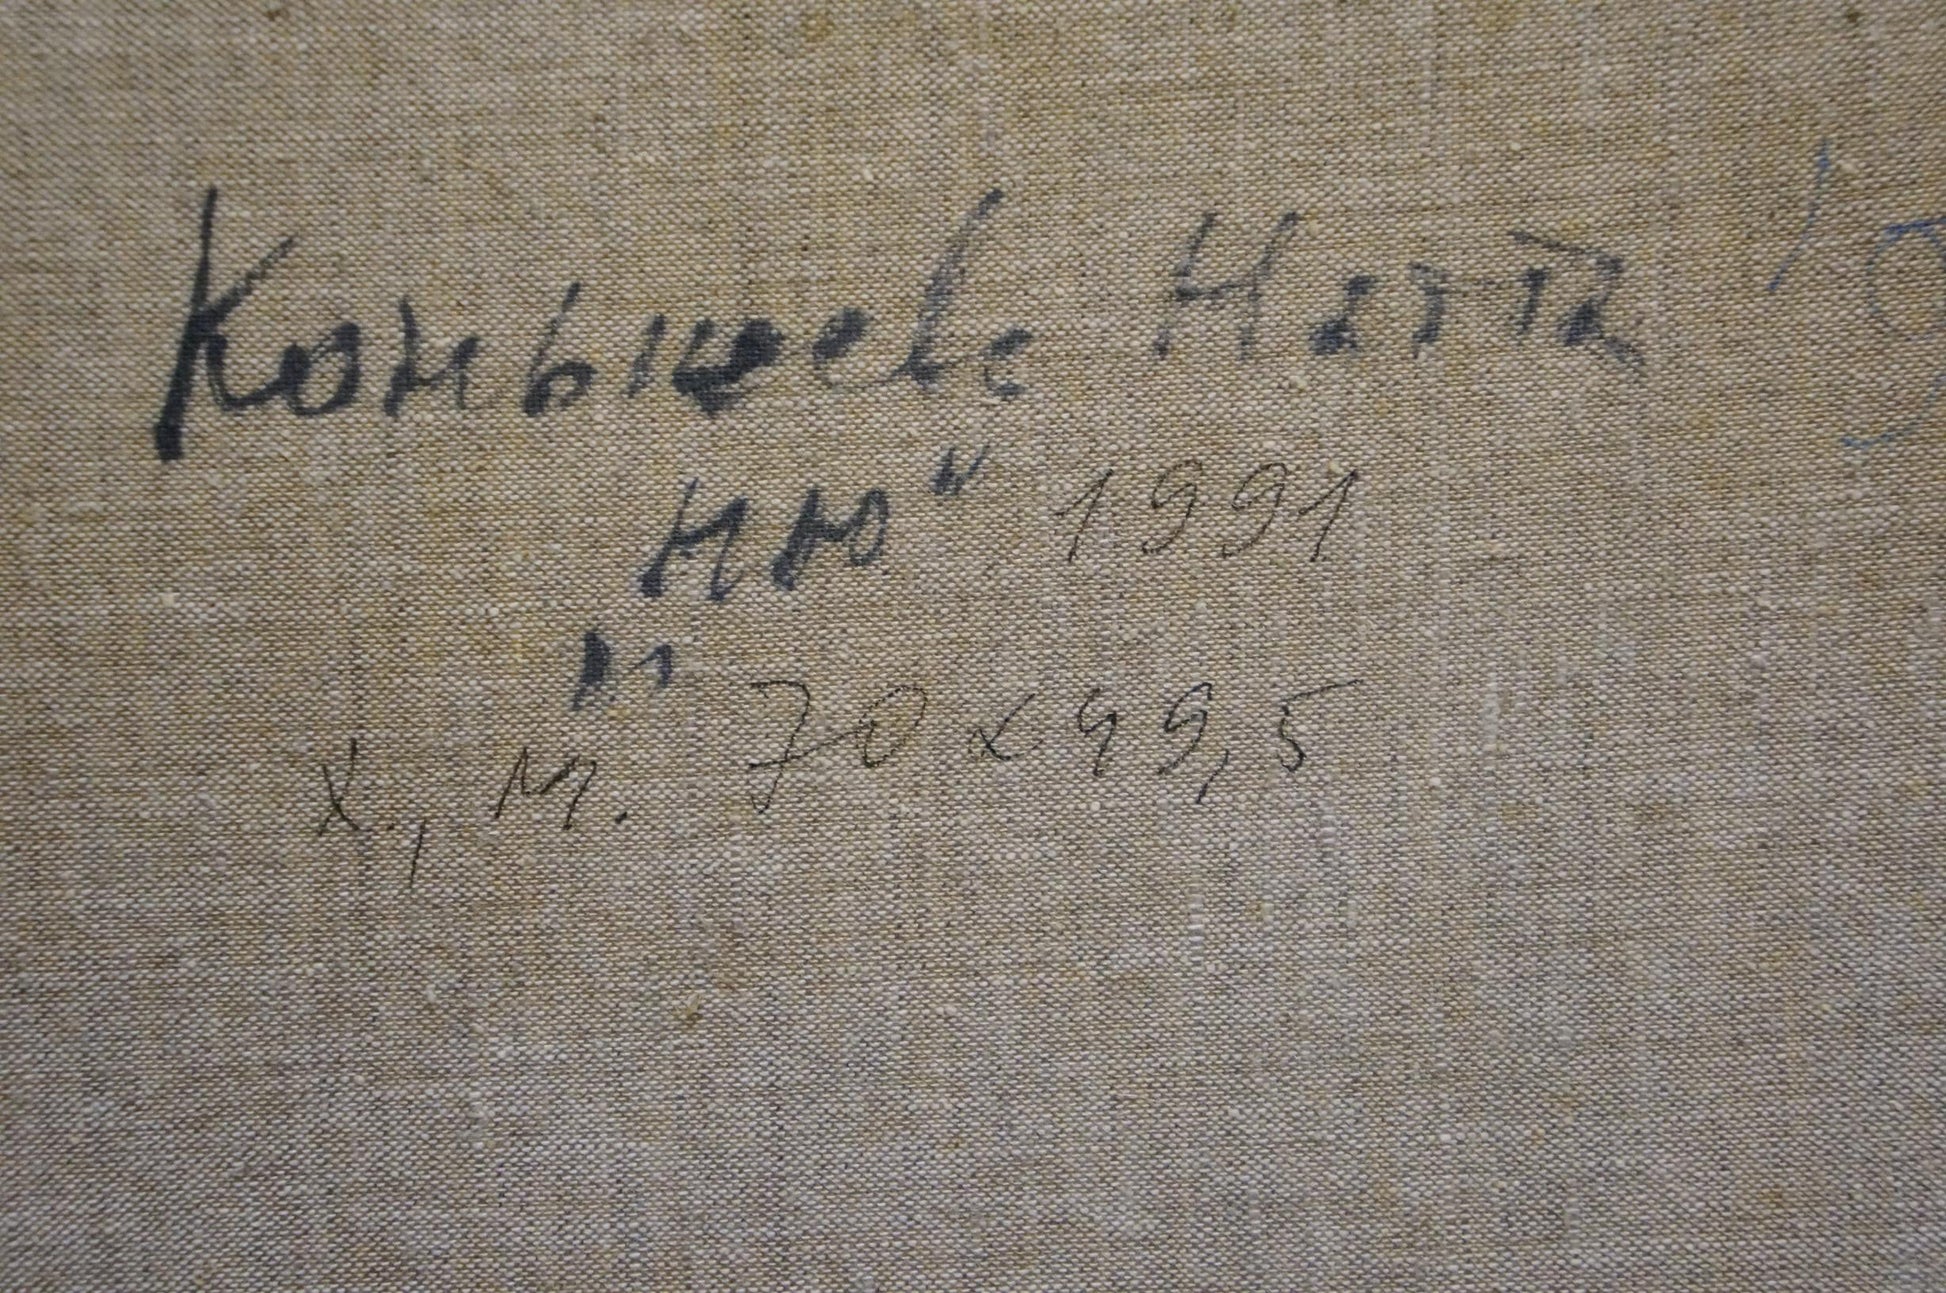 Конышева Натта
„Ню“ 1991
х., м. 70 х 49,5